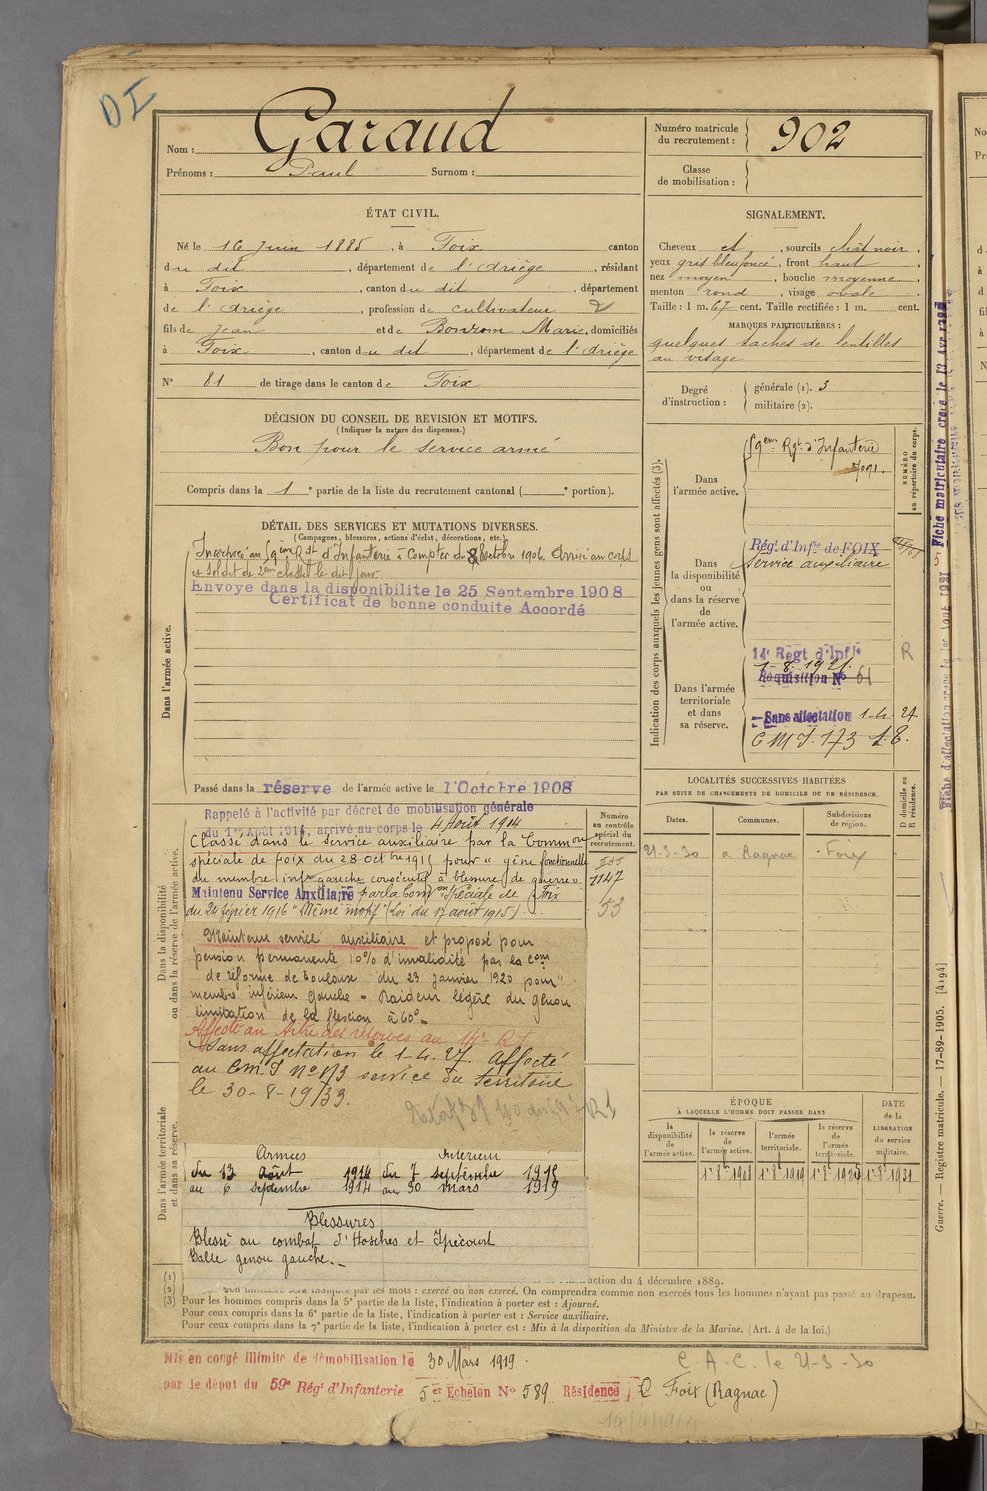 DI
Nom : Garaud
Prénoms : Paul Surnom :
Numéro matricule du recrutement : 902
Classe de mobilisation :
ÉTAT CIVIL.
Né le 16 Juin 1885, à Foix canton
du dit, département de l'Ariège, résidant
à Foix, canton du dit, département
de l'Ariège, profession de cultivateur
fils de Jean et de Bonrom Marie, domiciliés
à Foix, canton du dit, département de l'Ariège
N° 81 de tirage dans le canton de Foix
SIGNALEMENT.
Cheveux et, sourcils chât noir,
yeux gris bleu foncé, front haut,
nez moyen, bouche moyenne,
menton rond, visage ovale.
Taille : 1 m. 67 cent. Taille rectifiée : 1 m. cent.
MARQUES PARTICULIÈRES :
quelques taches de lentilles
au visage
Degré d'instruction : générale (1). 3
militaire (2).
DÉCISION DU CONSEIL DE REVISION ET MOTIFS.
(Indiquer la nature des dispenses.)
Bon pour le service armé
Compris dans la 1e partie de la liste du recrutement cantonal ( e portion).
DÉTAIL DES SERVICES ET MUTATIONS DIVERSES.
(Campagnes, blessures, actions d'éclat, décorations, etc.)
Dans l'armée active.
Incorporé au 59ème Rgt d'Infanterie à compter du 8 Octobre 1906. Arrivé au corps
et soldat de 2ème classe le dit jour.
Envoyé dans la disponibilité le 25 Septembre 1908
Certificat de bonne conduite Accordé
Passé dans la réserve de l'armée active le 1 Octobre 1908
Indication des corps auxquels les jeunes gens sont affectés (3).
NUMÉRO au répertoire du corps.
Dans l'armée active.
59ème Rgt d'Infanterie
Dans la disponibilité ou dans la réserve de l'armée active.
Régt d'Infie de FOIX
Service auxiliaire
Dans l'armée territoriale et dans sa réserve.
14e Régt d'Infie
1-8-1921.
Réquisition N° 61
R
Sans affectation 1-4-27
C M J. 173 S.E.
Dans la disponibilité ou dans la réserve de l'armée active.
Rappelé à l'activité par décret de mobilisation générale
du 1er Août 1914, arrivé au corps le 4 Août 1914
Classé dans le service auxiliaire par la Common
spéciale de Foix du 28 octbre 1915 pour " gêne fonctionnelle
du membre infr gauche consécutif à blessure de guerre"
Maintenu Service Auxiliaire par la Common Spéciale de Foix
du 24 février 1916 "Même motif" (Loi du 17 août 1915)
Numéro au contrôle spécial du recrutement.
1147
53
Maintenu service auxiliaire et proposé pour
pension permanente 10% d'invalidité par la Com
de réforme de Toulouse du 23 janvier 1920 pour "
membre inférieur gauche - Raideur légère du genou
limitation de la flexion à 60°.
Affecté au titre des réserves au 14e RI
Sans affectation le 1-4-27. Affecté
au C.M.J. no 173 service du Territoire
le 30-8-1933.
Dans l'armée territoriale et dans sa réserve.
Armées Intérieur
du 13 Août 1914 du 7 septembre 1914
au 6 septembre 1914 au 30 mars 1919
Blessures
Blessé au combat d'Hosches et Ipécourt
Balle genou gauche.
LOCALITÉS SUCCESSIVES HABITÉES
PAR SUITE DE CHANGEMENTS DE DOMICILE OU DE RÉSIDENCE.
Dates. Communes. Subdivisions de région. D domicile ou R résidence.
21-3-30 a Ragnac Foix
ÉPOQUE
À LAQUELLE L'HOMME DOIT PASSER DANS
la disponibilité de l'armée active. la réserve de l'armée active. l'armée territoriale. la réserve de l'armée territoriale. DATE de la LIBÉRATION du service militaire.
(1)
(2)
ction du 4 décembre 1889.
par les mots : exercé ou non exercé. On comprendra comme non exercés tous les hommes n'ayant pas passé au drapeau.
(3) Pour les hommes compris dans la 5e partie de la liste, l'indication à porter est : Ajourné.
Pour ceux compris dans la 6e partie de la liste, l'indication à porter est : Service auxiliaire.
Pour ceux compris dans la 7e partie de la liste, l'indication à porter est : Mis à la disposition du Ministre de la Marine. (Art. 4 de la loi.)
Mis en congé illimité de démobilisation le 30 Mars 1919.
par le dépôt du 59e Régt d'Infanterie 5er Echelon N° 589 Résidence C Foix (Ragnac)
C. A. C. le 21-3-30
Guerre. — Registre matricule. — 17-89-1905. [4194]
Fiche matriculaire créée le 13 Avr
Fiche d'affectation créée le 1er Août 1921